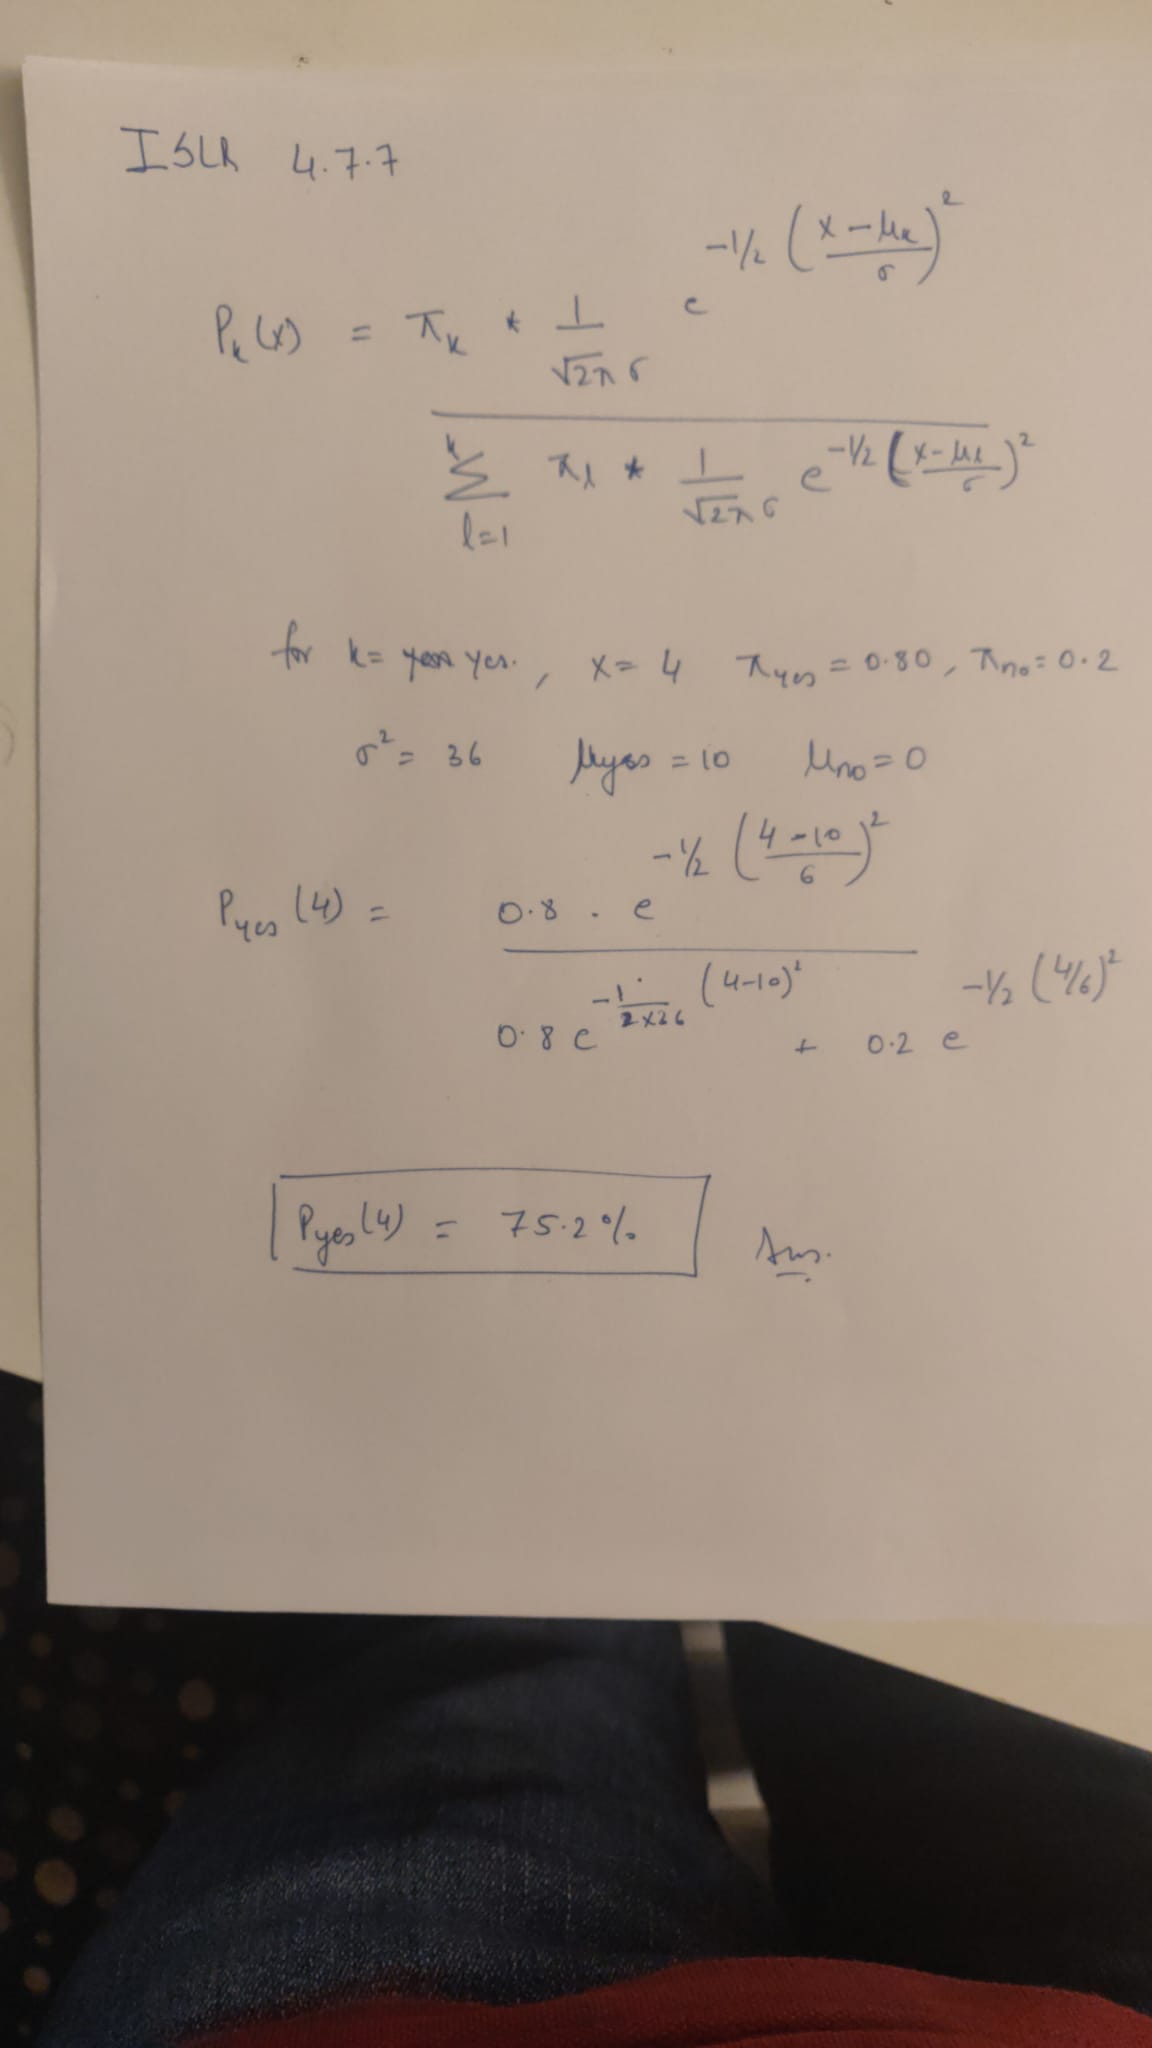 ISLR 4.7.7
P_k(x) = π_k * 1/(√2π σ) e^(-1/2 ((x-μ_k)/σ)^2)
Σ_(l=1)^k π_l * 1/(√2π σ) e^(-1/2 ((x-μ_l)/σ)^2)
for k = yes., x = 4 π_yes = 0.80, π_no = 0.2
σ² = 36 μ_yes = 10 μ_no = 0
P_yes (4) = 0.8 . e^(-1/2 ((4-10)/6)^2)
0.8 e^(-1/(2×36) (4-10)^2) + 0.2 e^(-1/2 (4/6)^2)
P_yes(4) = 75.2% Ans.